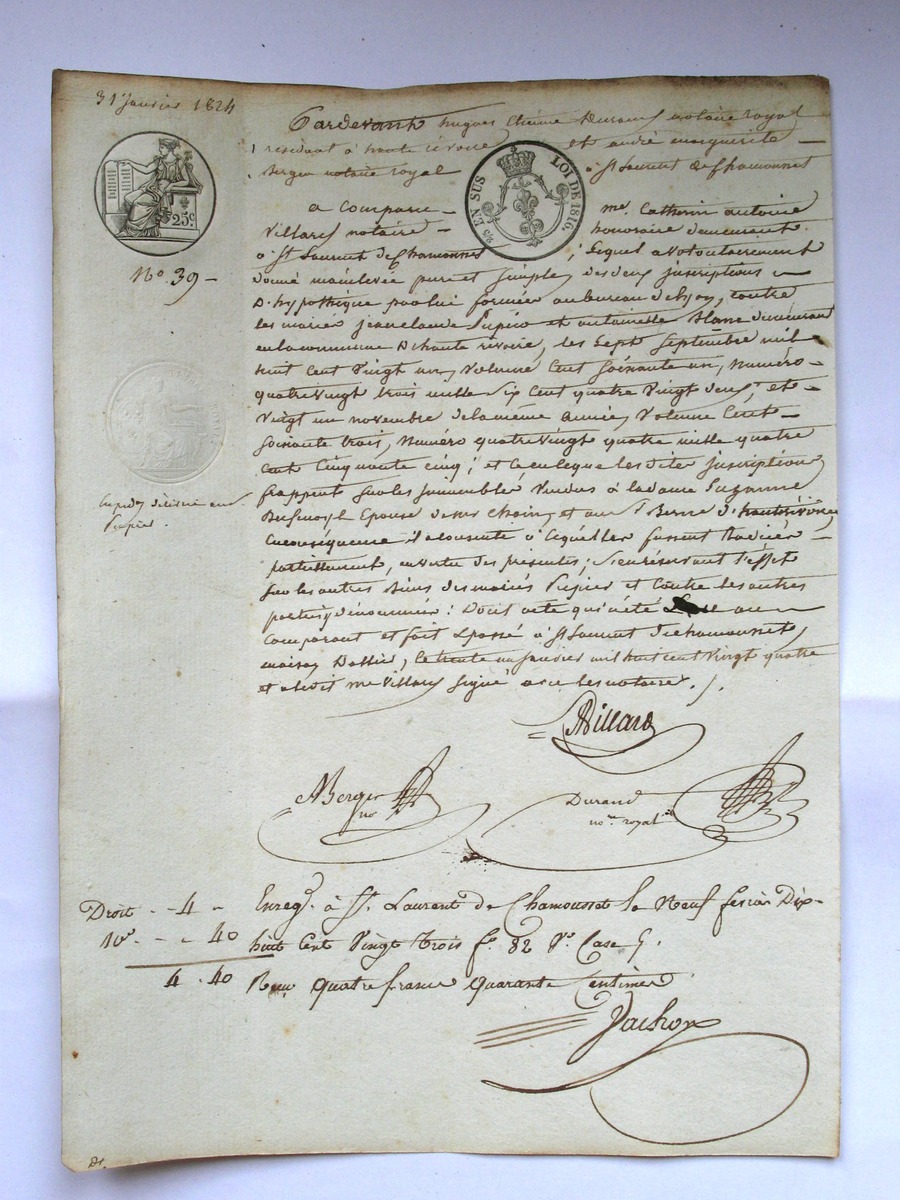 31 Janvier 1824
Pardevant hugues Etienne Durand notaire royal
residant à haute rivoire et andré marguerite
Berger notaire royal à St Laurent de Chamousset
25 EN SUS
LOI DE 1816.
25 c.
No. 39 -
a Comparu me. Catherin antoine
Villard notaire honoraire demeurant
à St Laurent de Chamousset, lequel a volontairement
donné mainlevée pure et simple des deux inscriptions
D'hypothèque par lui formées au bureau de Lyon, contre
les mariés jean claude Pupier et antoinette Blanc demeurant
en la commune D'haute rivoire, les Sept Septembre mil
huit Cent Vingt un, Volume Cent soixante un, Numéro
quatre vingt trois mille Six Cent quatre Vingt deux, et
Vingt un novembre de la meme année, Volume Cent
soixante trois, Numéro quatre vingt quatre mille quatre
cent Cinquante cinq; et ce en ce que les dites inscriptions
frappent sur les immeubles Vendus à la dame Suzanne
Epouse de et au Sr. D'hauterivoire
Enconséquence il a consenti à cequelles fussent Radiées
partiellement, en vertu des présentes; s'en réservant l'effet
sur les autres Biens des mariés Pupier et Contre les autres
parties y dénommées: Dont acte qui a été au
Comparant et fait & passé à St Laurent de chamousset,
maison Dallier, le trente un janvier mil huit cent vingt quatre
et a ledit me Villard signé avec les notaires ./.
Pupier.
Villard
ABerger
no
Durand
no.re royal
Droit - 4 -
10e. - - 40
4 . 40
Enreg. à St. Laurent de Chamousset le Neuf fevrier Dix-
huit Cent Vingt trois fo. 82 Vo. Case 5.
Reçu quatre francs quarante Centimes
Vachon